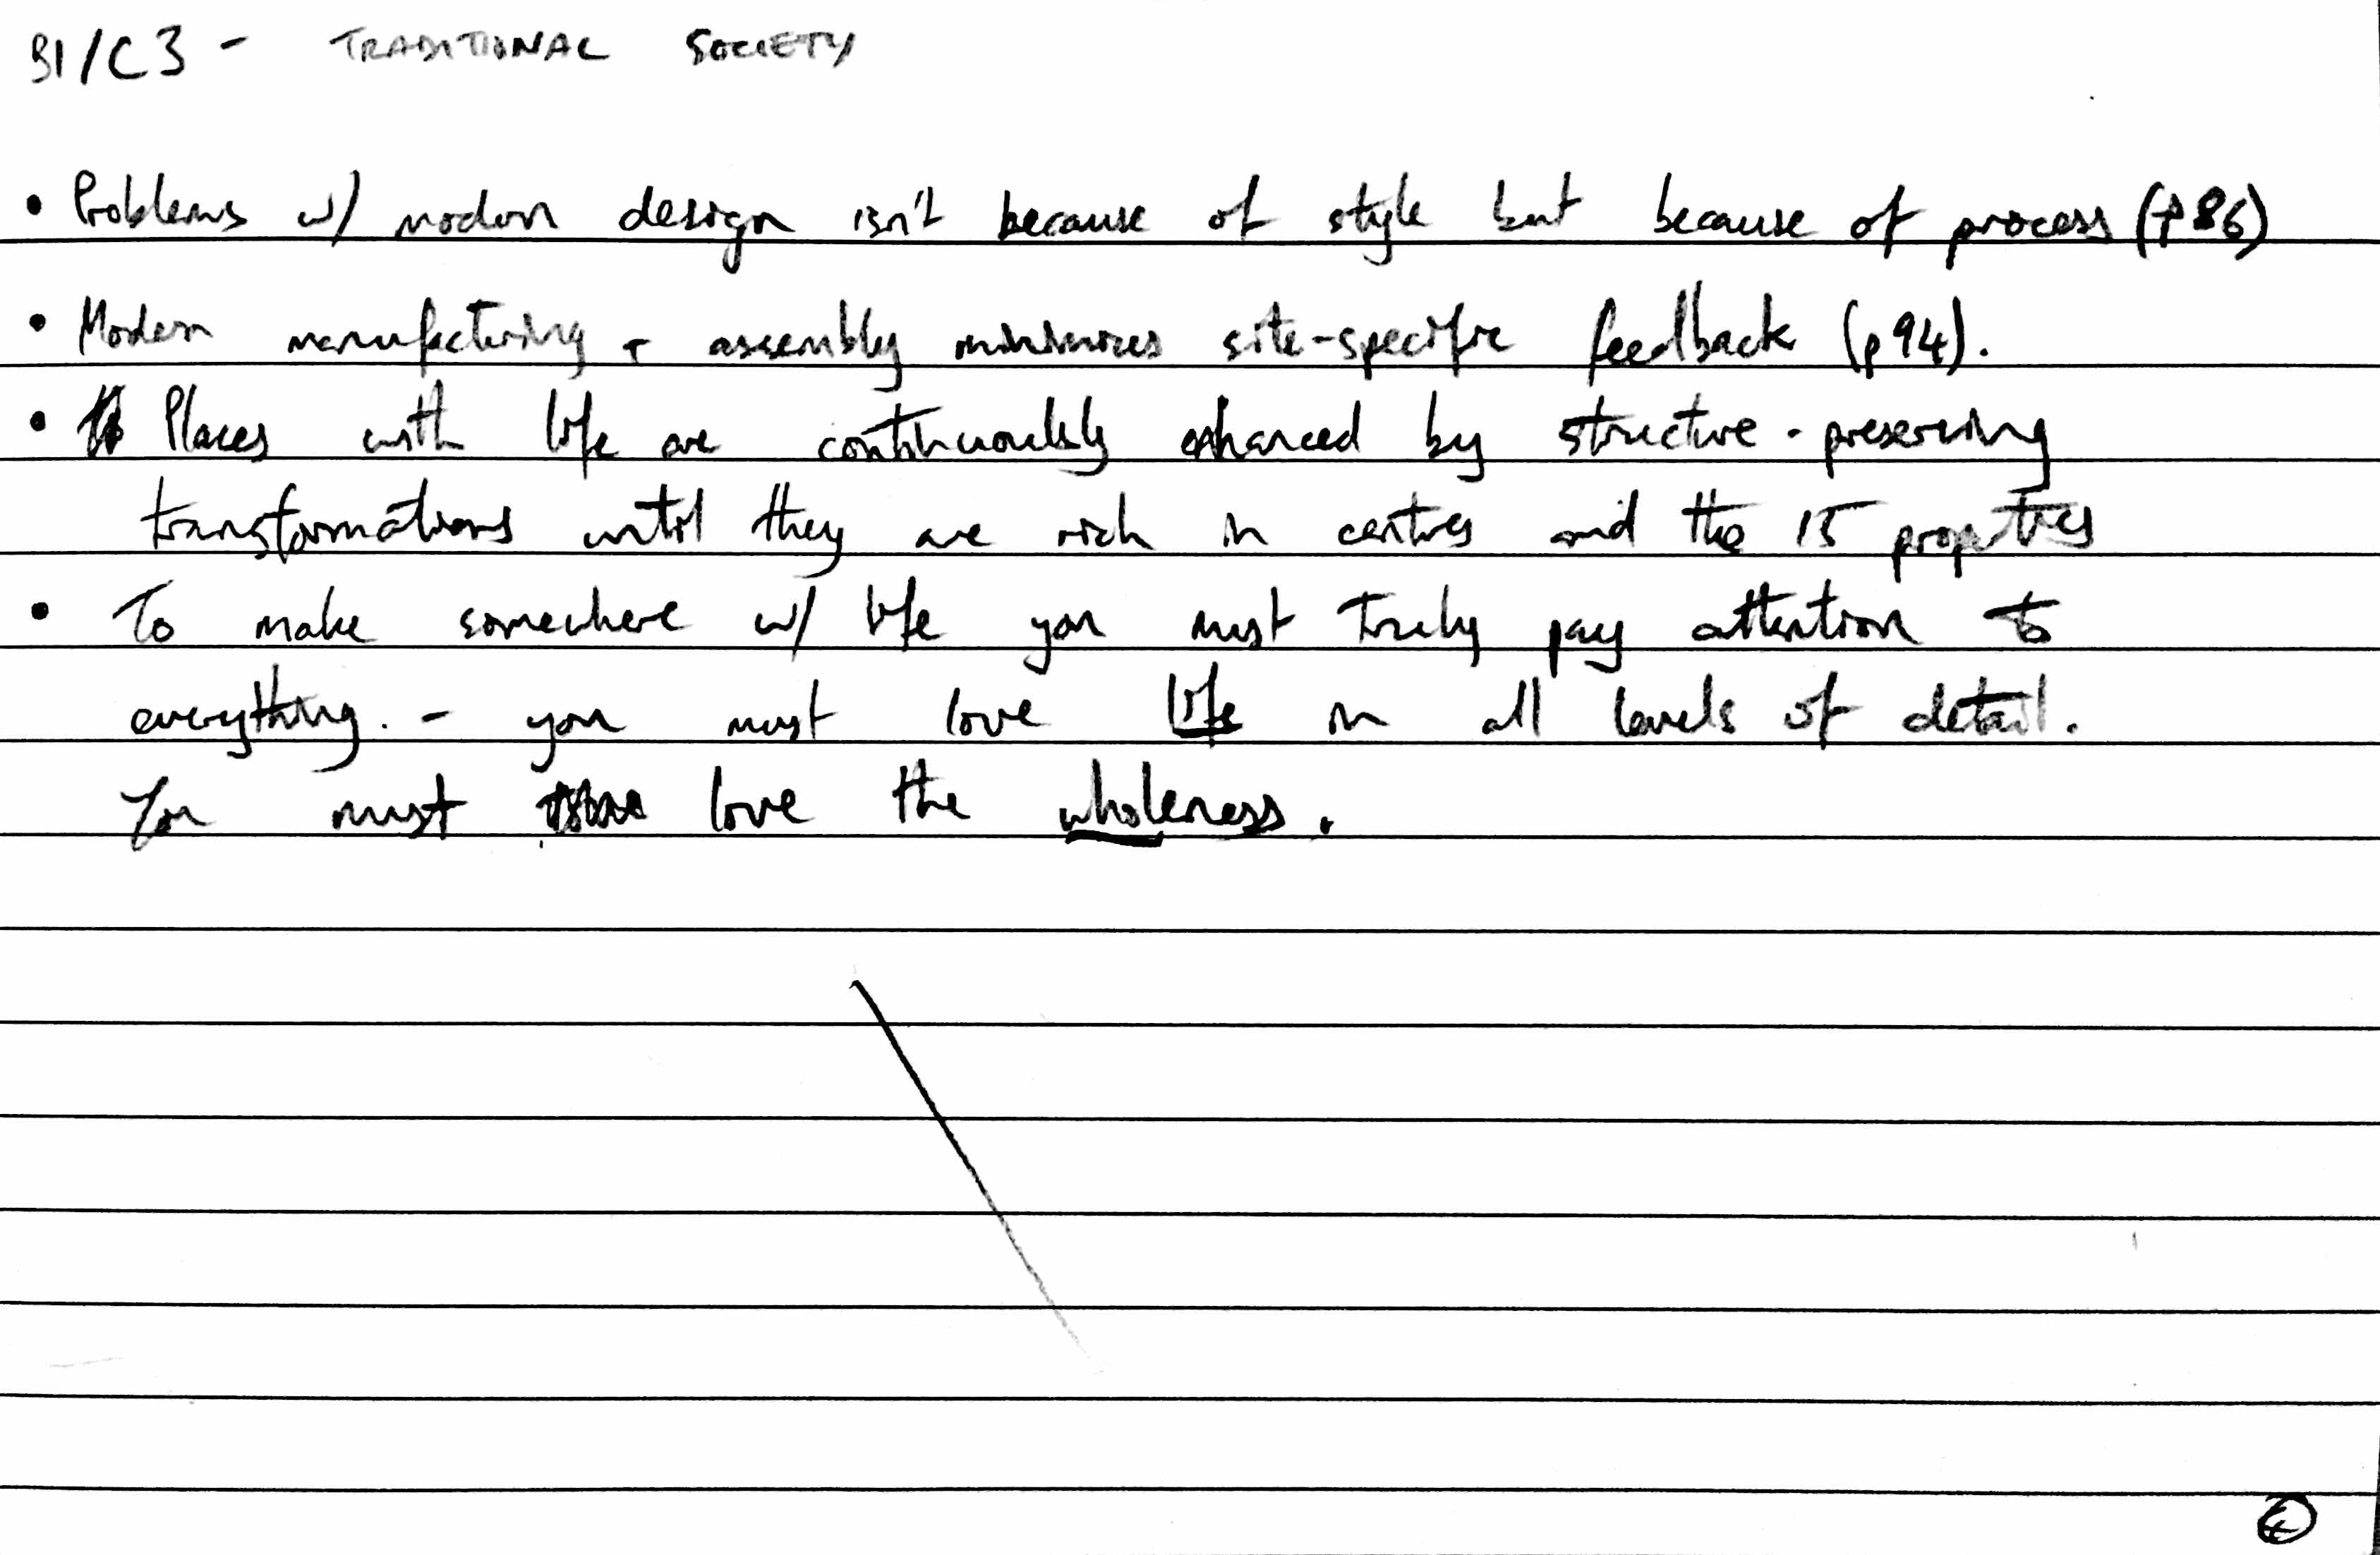 B1/C3 - TRADITIONAL SOCIETY
• Problems w/ modern design isn't because of style but because of process (p86)
• Modern manufacturing + assembly minimizes site-specific feedback (p94).
• Places with life are continuously enhanced by structure-preserving
transformations until they are rich in centres and the 15 properties
• To make somewhere w/ life you must truly pay attention to
everything. - you must love life in all levels of detail.
You must love the wholeness.